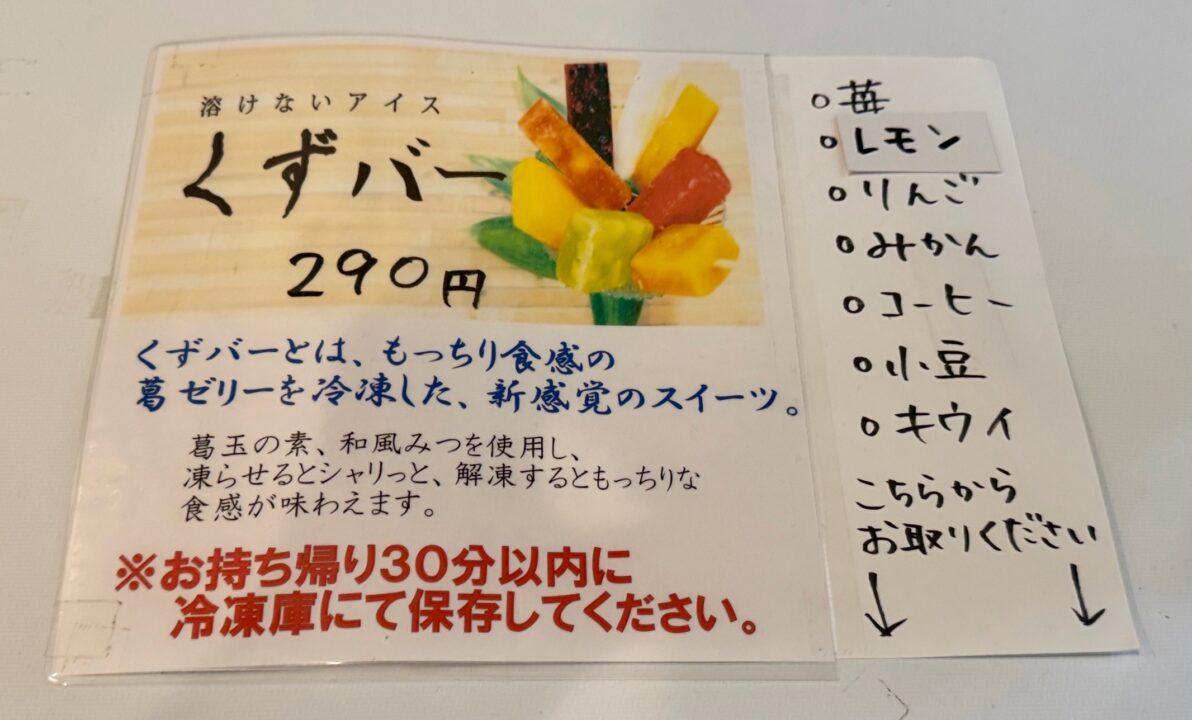 溶けないアイス
くずバー
290円
くずバーとは、もっちり食感の
葛ゼリーを冷凍した、新感覚のスイーツ。
葛玉の素、和風みつを使用し、
凍らせるとシャリっと、解凍するともっちりな
食感が味わえます。
※お持ち帰り30分以内に
冷凍庫にて保存してください。
○苺
○レモン
○りんご
○みかん
○コーヒー
○小豆
○キウィ
こちらから
お取りください
↓ ↓